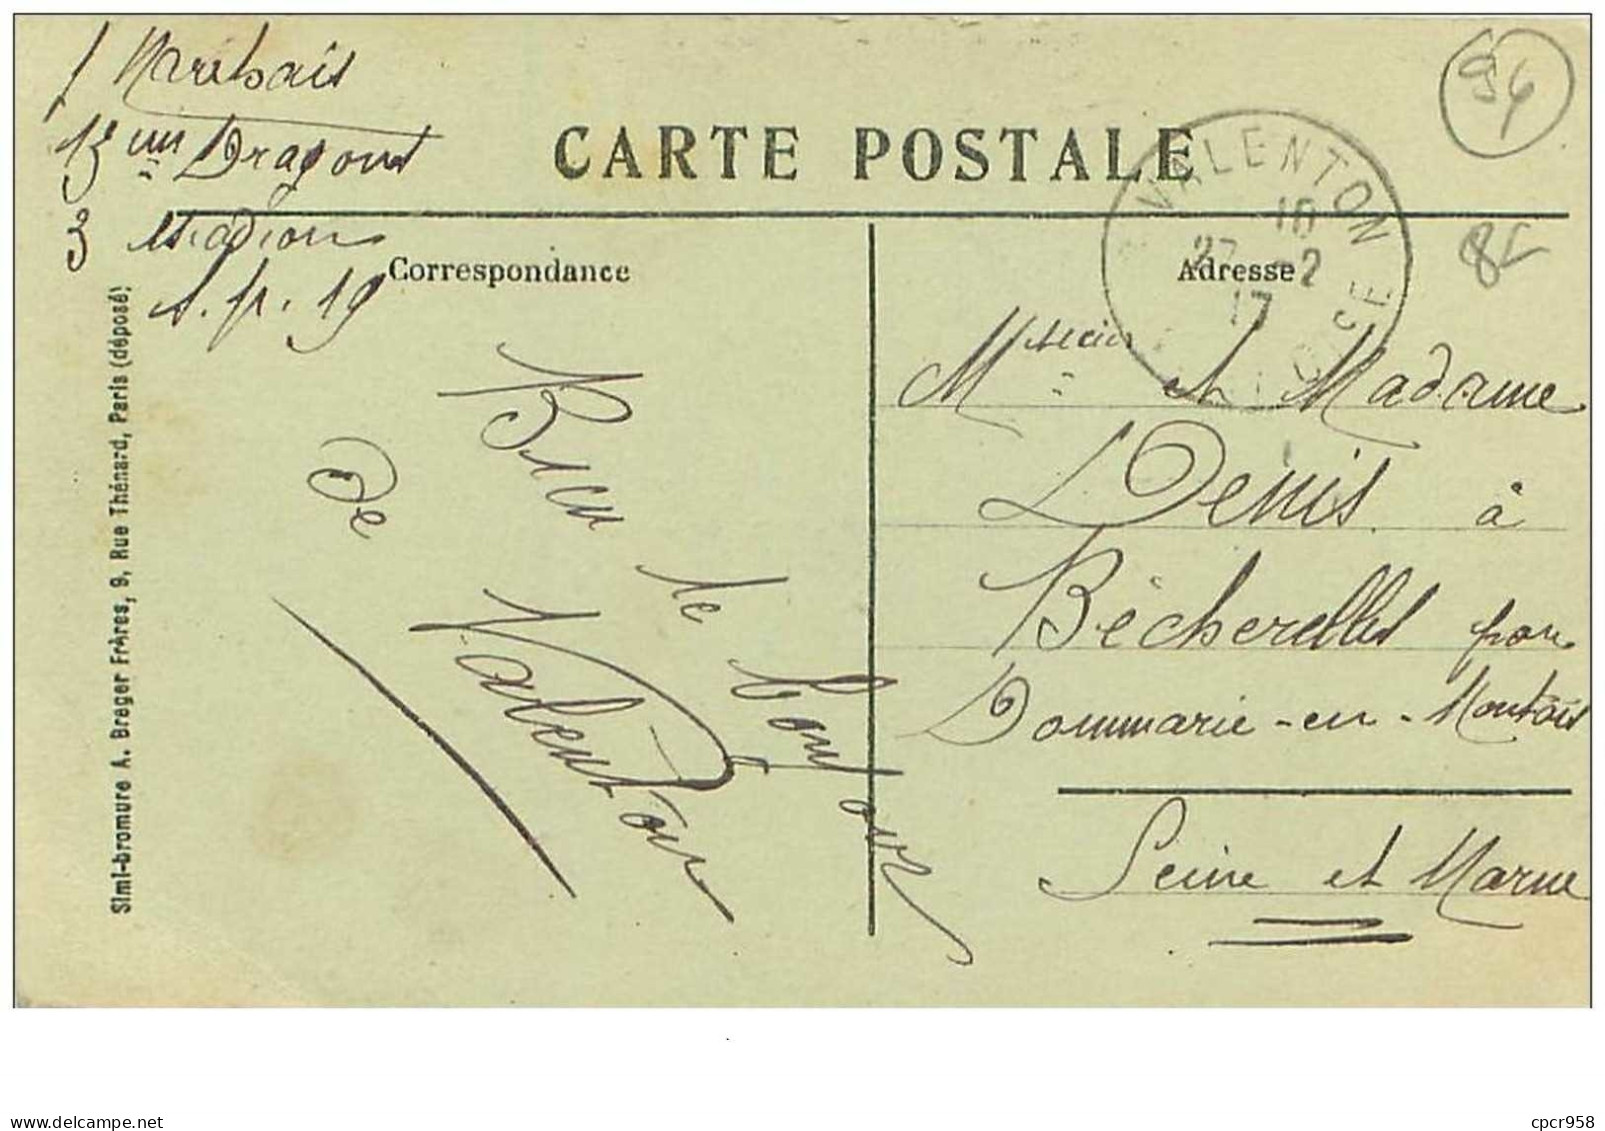 Marbais
13 Dragons
3
s. p. 19
CARTE POSTALE
VALENTON
10
27 -2
17
OISE
94
8€
Correspondance
Adresse
Bien le bonjour
de Valenton
Monsieur et Madame
Denis à
Bécherelles par
Dommarie-en-Montois
Seine et Marne
Simi-bromure A. Breger Frères, 9, Rue Thénard, Paris (déposé)
delcampe.net
cpcr958